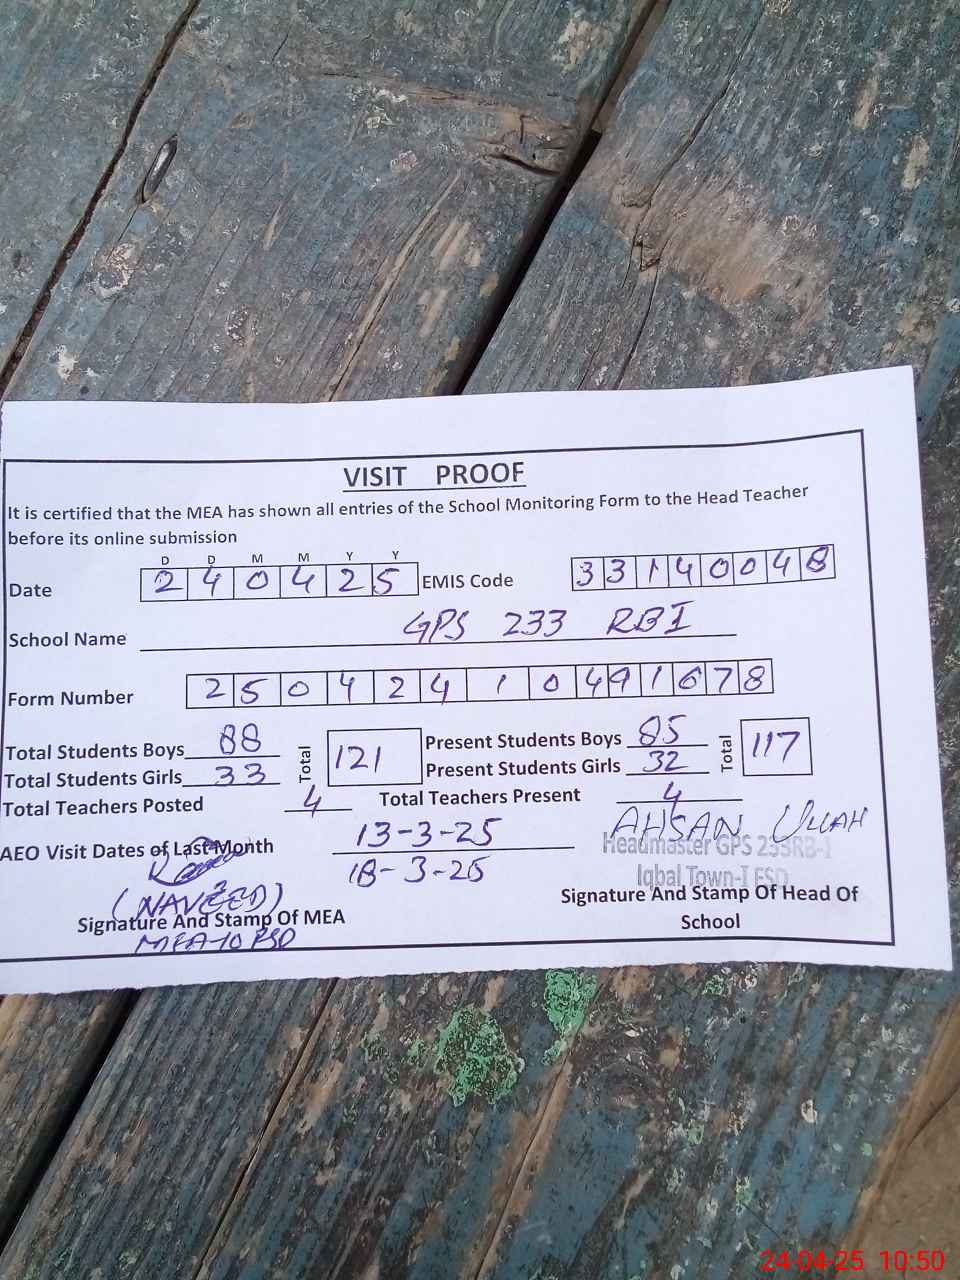 VISIT PROOF
It is certified that the MEA has shown all entries of the School Monitoring Form to the Head Teacher
before its online submission
D D M M Y Y
Date 2 4 0 4 2 5 EMIS Code 3 3 1 4 0 0 4 8
School Name GPS 233 RBI
Form Number 2 5 0 4 2 4 1 0 4 9 1 6 7 8
Total Students Boys 88 Total 121 Present Students Boys 85 Total 117
Total Students Girls 33 Present Students Girls 32
Total Teachers Posted 4 Total Teachers Present 4
AEO Visit Dates of Last Month 13-3-25 AHSAN ULLAH
18-3-25 Headmaster GPS 233RB-I
Iqbal Town-I FSD
(NAVEED)
Signature And Stamp Of MEA Signature And Stamp Of Head Of
School
MEA-10 FSD
24-04-25 10:50